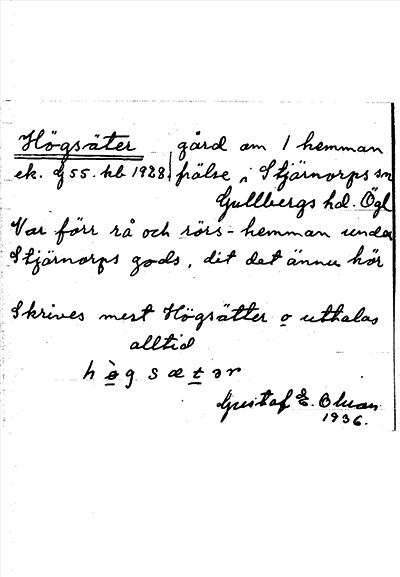 Högsäter gård om 1 hemman
ek. bl. 55. kb 1928. frälse i Stjärnorps sn
Gullbergs hd. Ögl
Var förr rå och rörs-hemman under
Stjärnorps gods, dit det ännu hör
Skrives mest Högsätter o uthalas
alltid
h ò g s æ t ə r
Gustaf E.
1936.